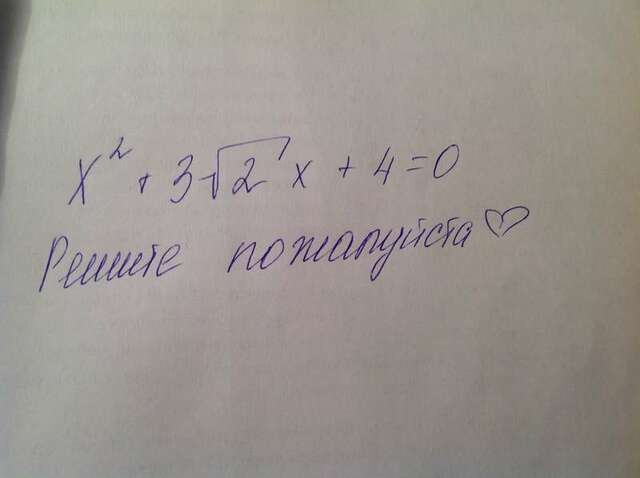 x² + 3√2 x + 4 = 0
Решите пожалуйста♡